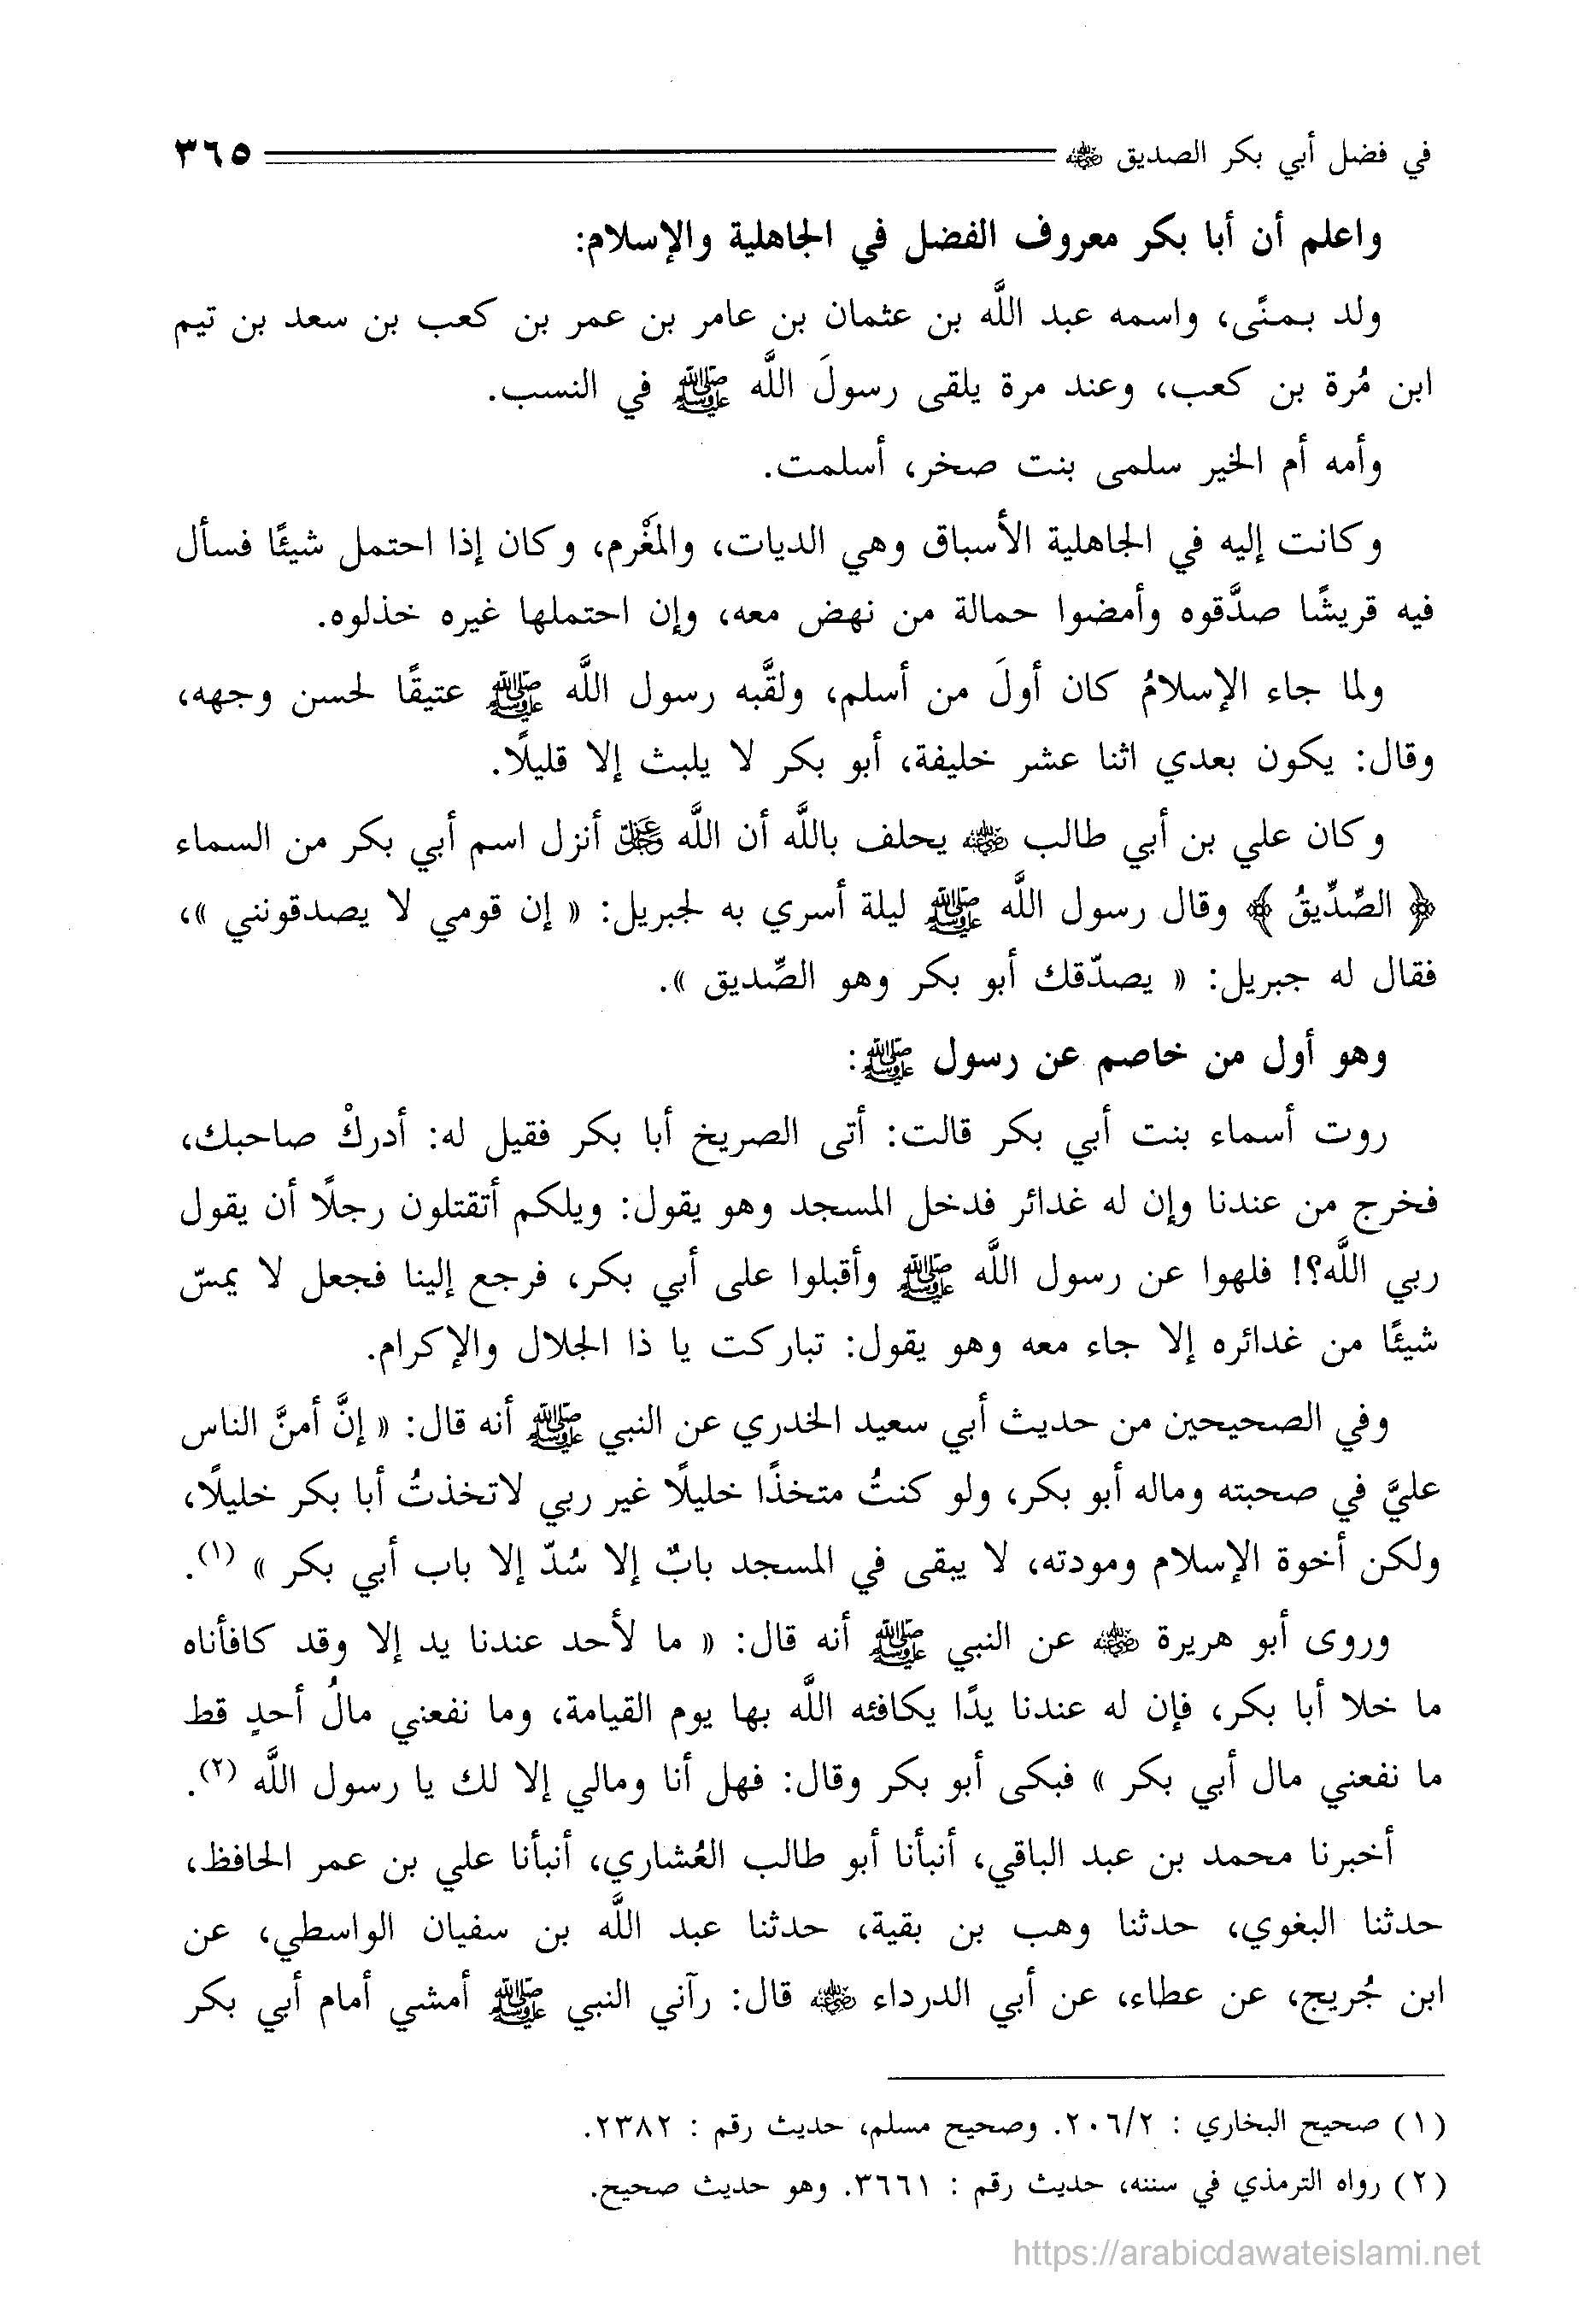 في فضل أبي بكر الصديق ﵁ ٣٦٥
واعلم أن أبا بكر معروف الفضل في الجاهلية والإسلام:
ولد بـمـنًى، واسمه عبد اللَّه بن عثمان بن عامر بن عمر بن كعب بن سعد بن تيم
ابن مُرة بن كعب، وعند مرة يلقى رسولَ اللَّه ﷺ في النسب.
وأمه أم الخير سلمى بنت صخر، أسلمت.
وكانت إليه في الجاهلية الأسباق وهي الديات، والمَغْرم، وكان إذا احتمل شيئًا فسأل
فيه قريشًا صدَّقوه وأمضوا حمالة من نهض معه، وإن احتملها غيره خذلوه.
ولما جاء الإسلامُ كان أولَ من أسلم، ولقَّبه رسول اللَّه ﷺ عتيقًا لحسن وجهه،
وقال: يكون بعدي اثنا عشر خليفة، أبو بكر لا يلبث إلا قليلًا.
وكان علي بن أبي طالب ﵁ يحلف باللَّه أن اللَّه ﷿ أنزل اسم أبي بكر من السماء
﴿ الصِّدِّيقُ ﴾ وقال رسول اللَّه ﷺ ليلة أسري به لجبريل: « إن قومي لا يصدقونني »،
فقال له جبريل: « يصدّقك أبو بكر وهو الصِّديق ».
وهو أول من خاصم عن رسول ﷺ:
روت أسماء بنت أبي بكر قالت: أتى الصريخ أبا بكر فقيل له: أدركْ صاحبك،
فخرج من عندنا وإن له غدائر فدخل المسجد وهو يقول: ويلكم أتقتلون رجلًا أن يقول
ربي اللَّه؟! فلهوا عن رسول اللَّه ﷺ وأقبلوا على أبي بكر، فرجع إلينا فجعل لا يمسّ
شيئًا من غدائره إلا جاء معه وهو يقول: تباركت يا ذا الجلال والإكرام.
وفي الصحيحين من حديث أبي سعيد الخدري عن النبي ﷺ أنه قال: « إنَّ أمنَّ الناس
عليَّ في صحبته وماله أبو بكر، ولو كنتُ متخذًا خليلًا غير ربي لاتخذتُ أبا بكر خليلًا،
ولكن أخوة الإسلام ومودته، لا يبقى في المسجد بابٌ إلا سُدّ إلا باب أبي بكر » (١).
وروى أبو هريرة ﵁ عن النبي ﷺ أنه قال: « ما لأحد عندنا يد إلا وقد كافأناه
ما خلا أبا بكر، فإن له عندنا يدًا يكافئه اللَّه بها يوم القيامة، وما نفعني مالُ أحدٍ قط
ما نفعني مال أبي بكر » فبكى أبو بكر وقال: فهل أنا ومالي إلا لك يا رسول اللَّه (٢).
أخبرنا محمد بن عبد الباقي، أنبأنا أبو طالب العُشاري، أنبأنا علي بن عمر الحافظ،
حدثنا البغوي، حدثنا وهب بن بقية، حدثنا عبد اللَّه بن سفيان الواسطي، عن
ابن جُريج، عن عطاء، عن أبي الدرداء ﵁ قال: رآني النبي ﷺ أمشي أمام أبي بكر
(١) صحيح البخاري : ٢٠٦/٢. وصحيح مسلم، حديث رقم : ٢٣٨٢.
(٢) رواه الترمذي في سننه، حديث رقم : ٣٦٦١. وهو حديث صحيح.
https://arabicdawateislami.net